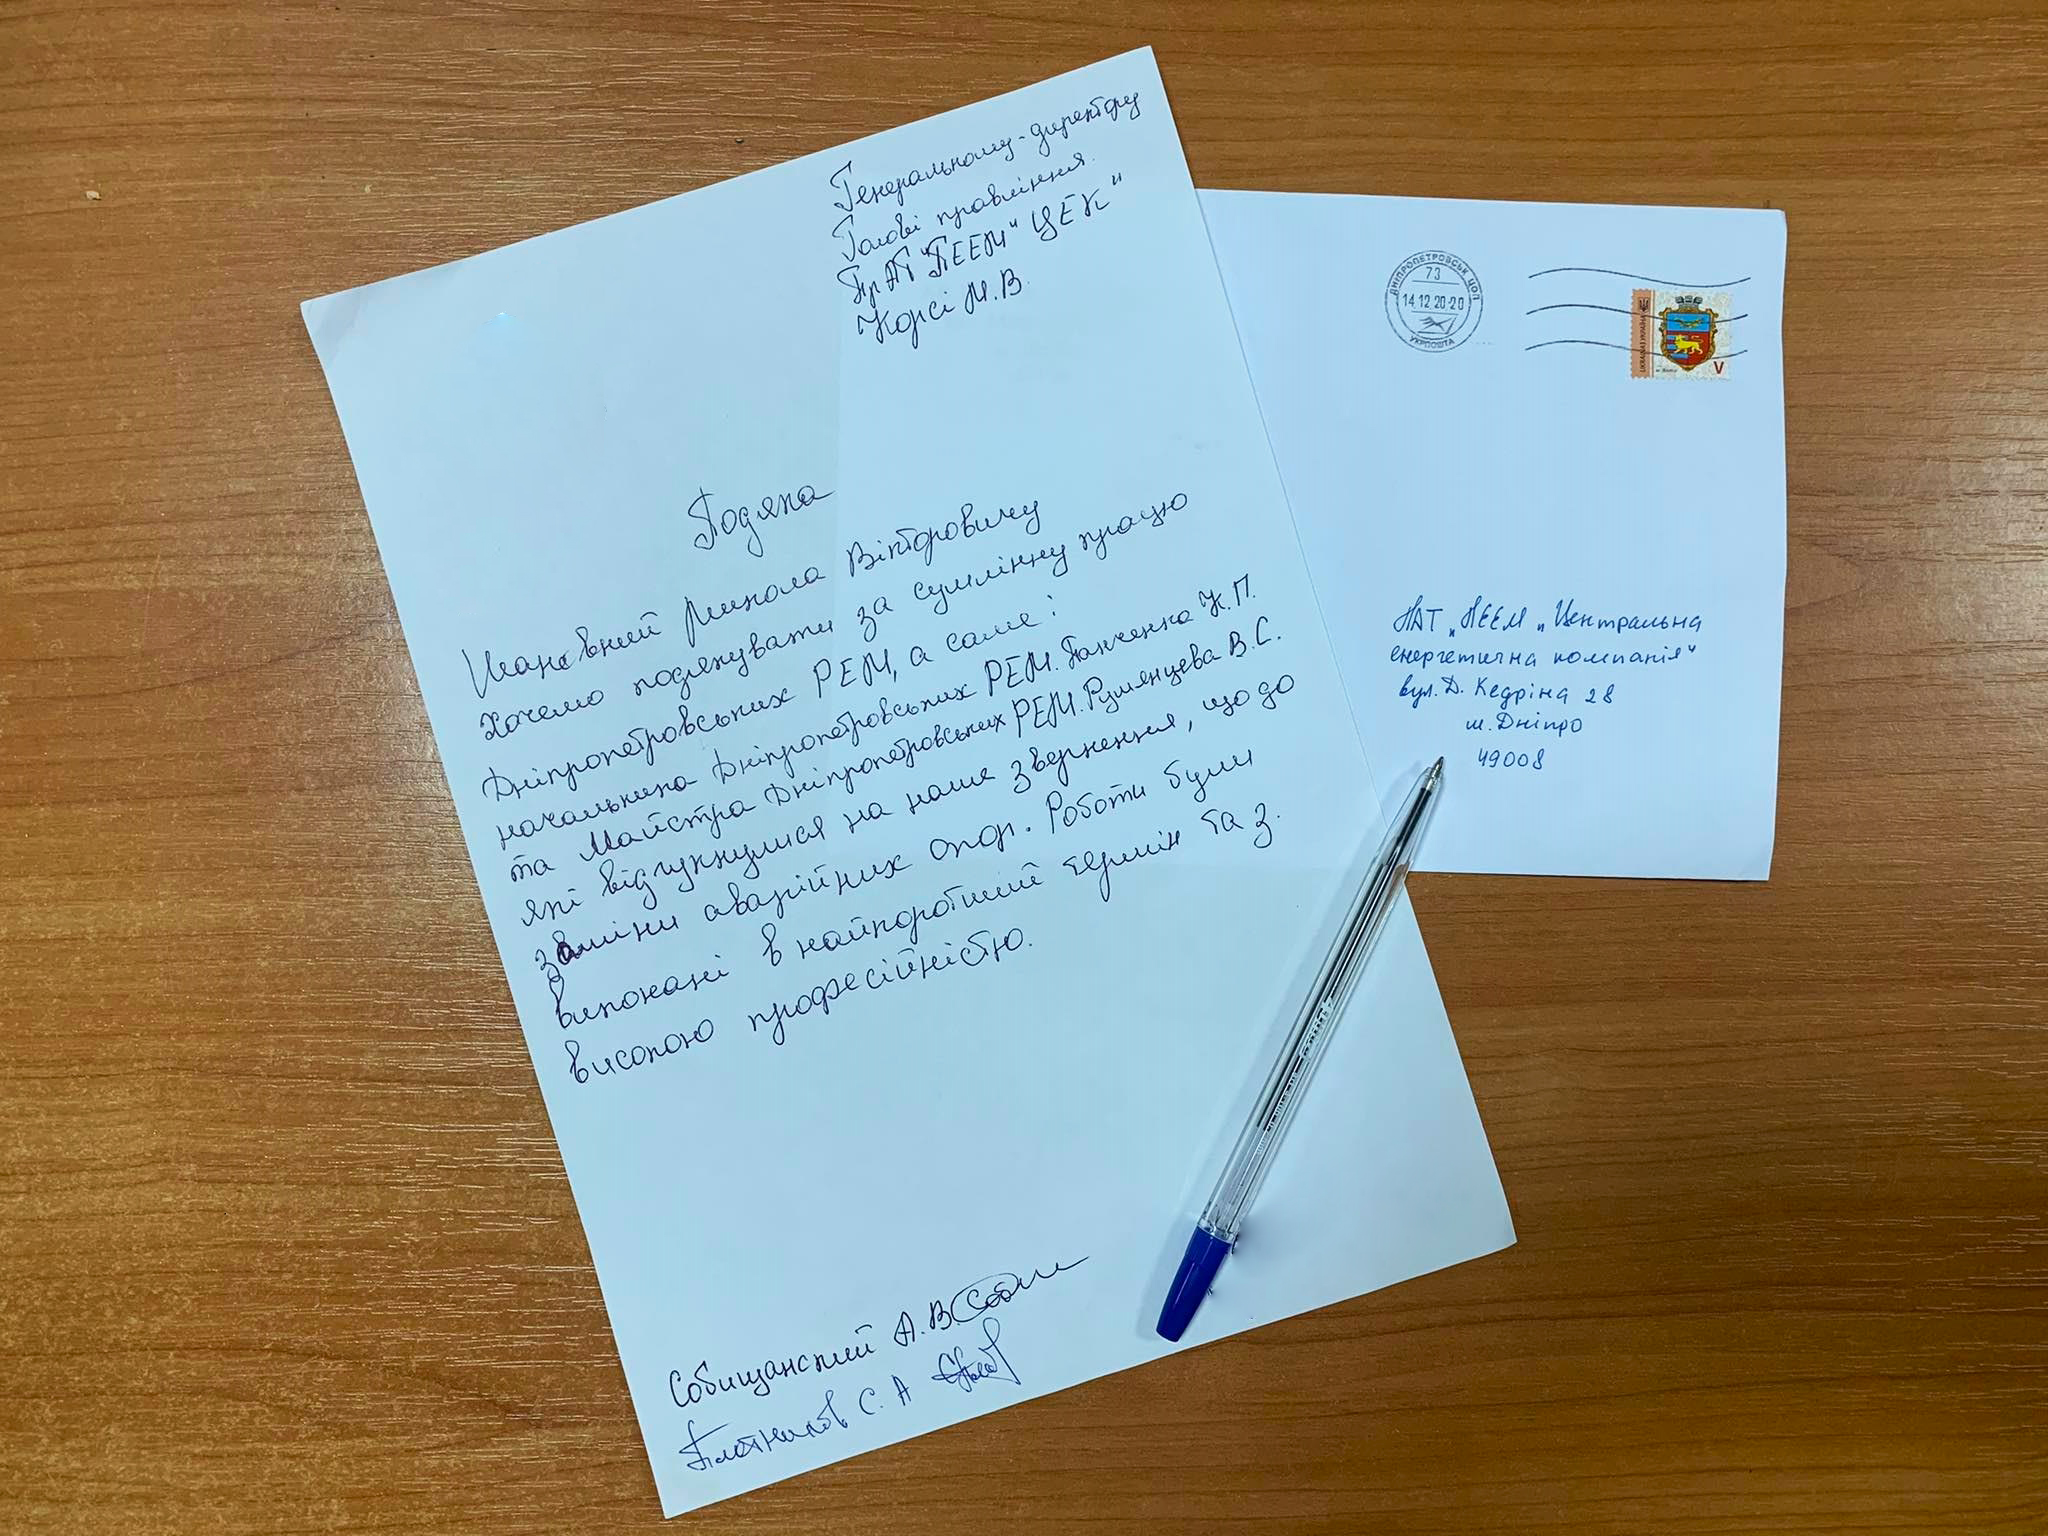 Генеральному-директору
Голові правління
ПрАТ "ПЕЕМ" ЦЕК"
Корсі М.В.
Подяка
Шановний Микола Вікторовичу
Хочемо подякувати за сумлінну працю
Дніпропетровських РЕМ, а саме:
начальника Дніпропетровських РЕМ. Панченка К.П.
та Майстра Дніпропетровських РЕМ. Румянцева В.С.
які відгукнулися на наше звернення, що до
заміни аварійних опор. Роботи були
виконані в найкоротший термін та з.
високою професійністю.
Собищанский А.В.
Плотников С.А
ДНІПРОПЕТРОВСЬК ЦОП
73
14.12.20-20
УКРПОШТА
UKRAINE УКРАЇНА
V
ПАТ "ПЕЕМ "Центральна
енергетична компанія"
вул. Д. Кедріна 28
м. Дніпро
49008